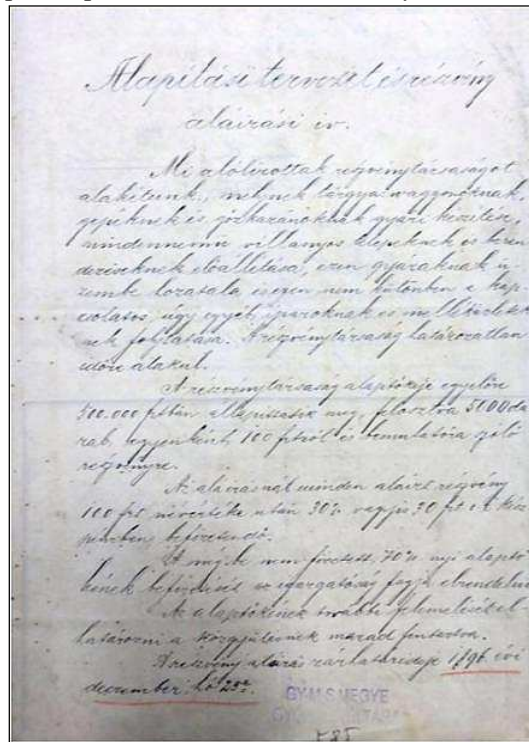 Alapítási tervezet és részvény
aláirási iv.
Mi alólirottak részvénytársaságot
alakitunk, melynek tárgya: waggonoknak,
gépeknek és gőzkazánoknak gyári készitése,
mindennemü villamos telepeknek és beren
dezéseknek előállitása, ezen gyáraknak ü-
zembe hozatala és ezen nem különben e kap
csolatos, ugy egyéb iparoknak és mellékletek
nek folytatása. A részvénytársaság határozatlan
időre alakul.
A részvénytársaság alaptőkéje egyelőre
500.000 frtban állapittatik meg, felosztva 5000 da
rab, egyenként 100 frtról és bemutatóra szóló
részvényre.
Az aláirásnál minden aláirt részvény
100 frt névértéke után 30% vagyis 30 frt kész
pénzben befizetendő.
A még be nem fizetett 70% nyi alaptő
kének befizetését az igazgatóság fogja elrendelni
Az alaptőkének további felemelését el
határozni a közgyülésnek marad fentartva.
A részvény aláirás zárhatárideje 1896 évi
december hó 25é.
GY-M-S MEGYE
585